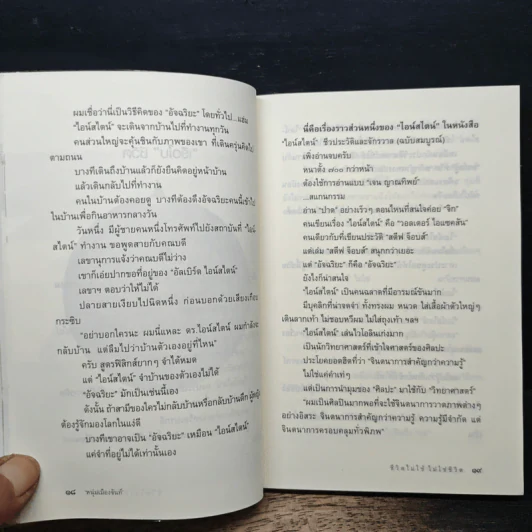 ผมเชื่อว่านี่เป็นวิธีคิดของ "อัจฉริยะ" โดยทั่วไป...แฮ่ม
"ไอน์สไตน์" จะเดินจากบ้านไปที่ทำงานทุกวัน
คนส่วนใหญ่จะคุ้นชินกับภาพของเขา ที่เดินครุ่นคิดไป
ตามถนน
บางทีเดินถึงบ้านแล้วก็ยังยืนคิดอยู่หน้าบ้าน
แล้วเดินกลับไปที่ทำงาน
คนในบ้านต้องคอยดู บางทีต้องดึงอัจฉริยะคนนี้เข้าไป
ในบ้านเพื่อกินอาหารกลางวัน
วันหนึ่ง มีผู้ชายคนหนึ่งโทรศัพท์ไปยังสถาบันที่ "ไอน์
สไตน์" ทำงาน ขอพูดสายกับคณบดี
เลขานุการแจ้งว่าคณบดีไม่ว่าง
เขาก็เอ่ยปากขอที่อยู่ของ "อัลเบิร์ต ไอน์สไตน์"
เลขาฯ ตอบว่าให้ไม่ได้
ปลายสายเงียบไปนิดหนึ่ง ก่อนบอกด้วยเสียงเกือบ
กระซิบ
"อย่าบอกใครนะ ผมนี่แหละ ดร.ไอน์สไตน์ ผมกำลัง
กลับบ้าน แต่ลืมไปว่าบ้านตัวเองอยู่ที่ไหน"
ครับ สูตรฟิสิกส์ยากๆ จำได้หมด
แต่ "ไอน์สไตน์" จำบ้านของตัวเองไม่ได้
"อัจฉริยะ" มักเป็นเช่นนี้เอง
ดังนั้น ถ้าสามีของใครไม่กลับบ้านหรือกลับบ้านดึก
ต้องรู้จักมองโลกในแง่ดี
บางทีเขาอาจเป็น "อัจฉริยะ" เหมือน "ไอน์สไตน์"
แค่จำที่อยู่ไม่ได้เท่านั้นเอง
๑๘ หนุ่มเมืองจันท์
นี่คือเรื่องราวส่วนหนึ่งของ "ไอน์สไตน์" ในหนังสือ
"ไอน์สไตน์" ชีวประวัติและจักรวาล (ฉบับสมบูรณ์)
เพิ่งอ่านจบครับ
หนาตั้ง ๗๐๐ กว่าหน้า
ต้องใช้การอ่านแบบ "เจน ญาณทิพย์"
...สแกนกรรม
อ่าน "ปาด" อย่างเร็วๆ ตอนไหนที่สนใจค่อย "จิก"
คนเขียนเรื่อง "ไอน์สไตน์" คือ "วอลเตอร์ ไอแซคสัน"
คนเดียวกับที่เขียนประวัติ "สตีฟ จ็อบส์"
แต่เล่ม "สตีฟ จ็อบส์" สนุกกว่าเยอะ
แต่ "อัจฉริยะ" ก็คือ "อัจฉริยะ"
ยังไงก็น่าสนใจ
"ไอน์สไตน์" เป็นคนฉลาดที่มีอารมณ์ขันมาก
มีบุคลิกที่น่าจดจำ ทั้งทรงผม หนวด ใส่เสื้อผ้าตัวใหญ่ๆ
เดินลากเท้า ไม่ชอบหวีผม ไม่ใส่ถุงเท้า ฯลฯ
"ไอน์สไตน์" เล่นไวโอลินเก่งมาก
เป็นนักวิทยาศาสตร์ที่เข้าใจศาสตร์ของศิลปะ
ประโยคยอดฮิตที่ว่า "จินตนาการสำคัญกว่าความรู้"
ไม่ใช่แค่คำเท่ๆ
แต่เป็นการนำมุมของ "ศิลปะ" มาใช้กับ "วิทยาศาสตร์"
"ผมเป็นศิลปินมากพอที่จะใช้จินตนาการวาดภาพต่างๆ
อย่างอิสระ จินตนาการสำคัญกว่าความรู้ ความรู้มีจำกัด แต่
จินตนาการครอบคลุมทั่วพิภพ"
๑๙